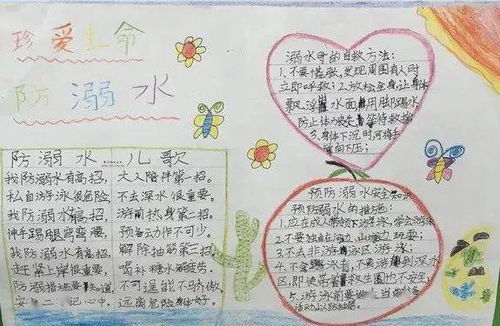 珍爱生命
防溺水
防溺水儿歌
我防溺水有高招，大人陪伴第一招。
私自游泳很危险，不去深水很重要。
我防溺水有高招，游前热身第二招。
伸手踢腿弯弯腰，预备动作不可少。
我防溺水有高招，解除抽筋第三招。
赶紧上岸很重要，喝补糖水解疲劳。
防溺措施要知道，不可逞能不马乔做，
安 记心中，远离危险身体好。
溺水时的自救方法：
1.不要慌张，发现周围有人时
立即呼救；2.放松全身，让身体
飘浮 水面 用脚踢水
防止体力丧失 等待救援
3.身体下沉时，可将手
掌向下压；
预防溺水安全知识
预防溺水的措施：
1.应在成人带领下游泳，学会游泳
2.不要独自在河边、山塘边玩耍；
3.不去非游泳区游泳；
4.不会游泳者，不要游到深水
区，即使带着救生圈也不安全
5.游泳前要做
活动